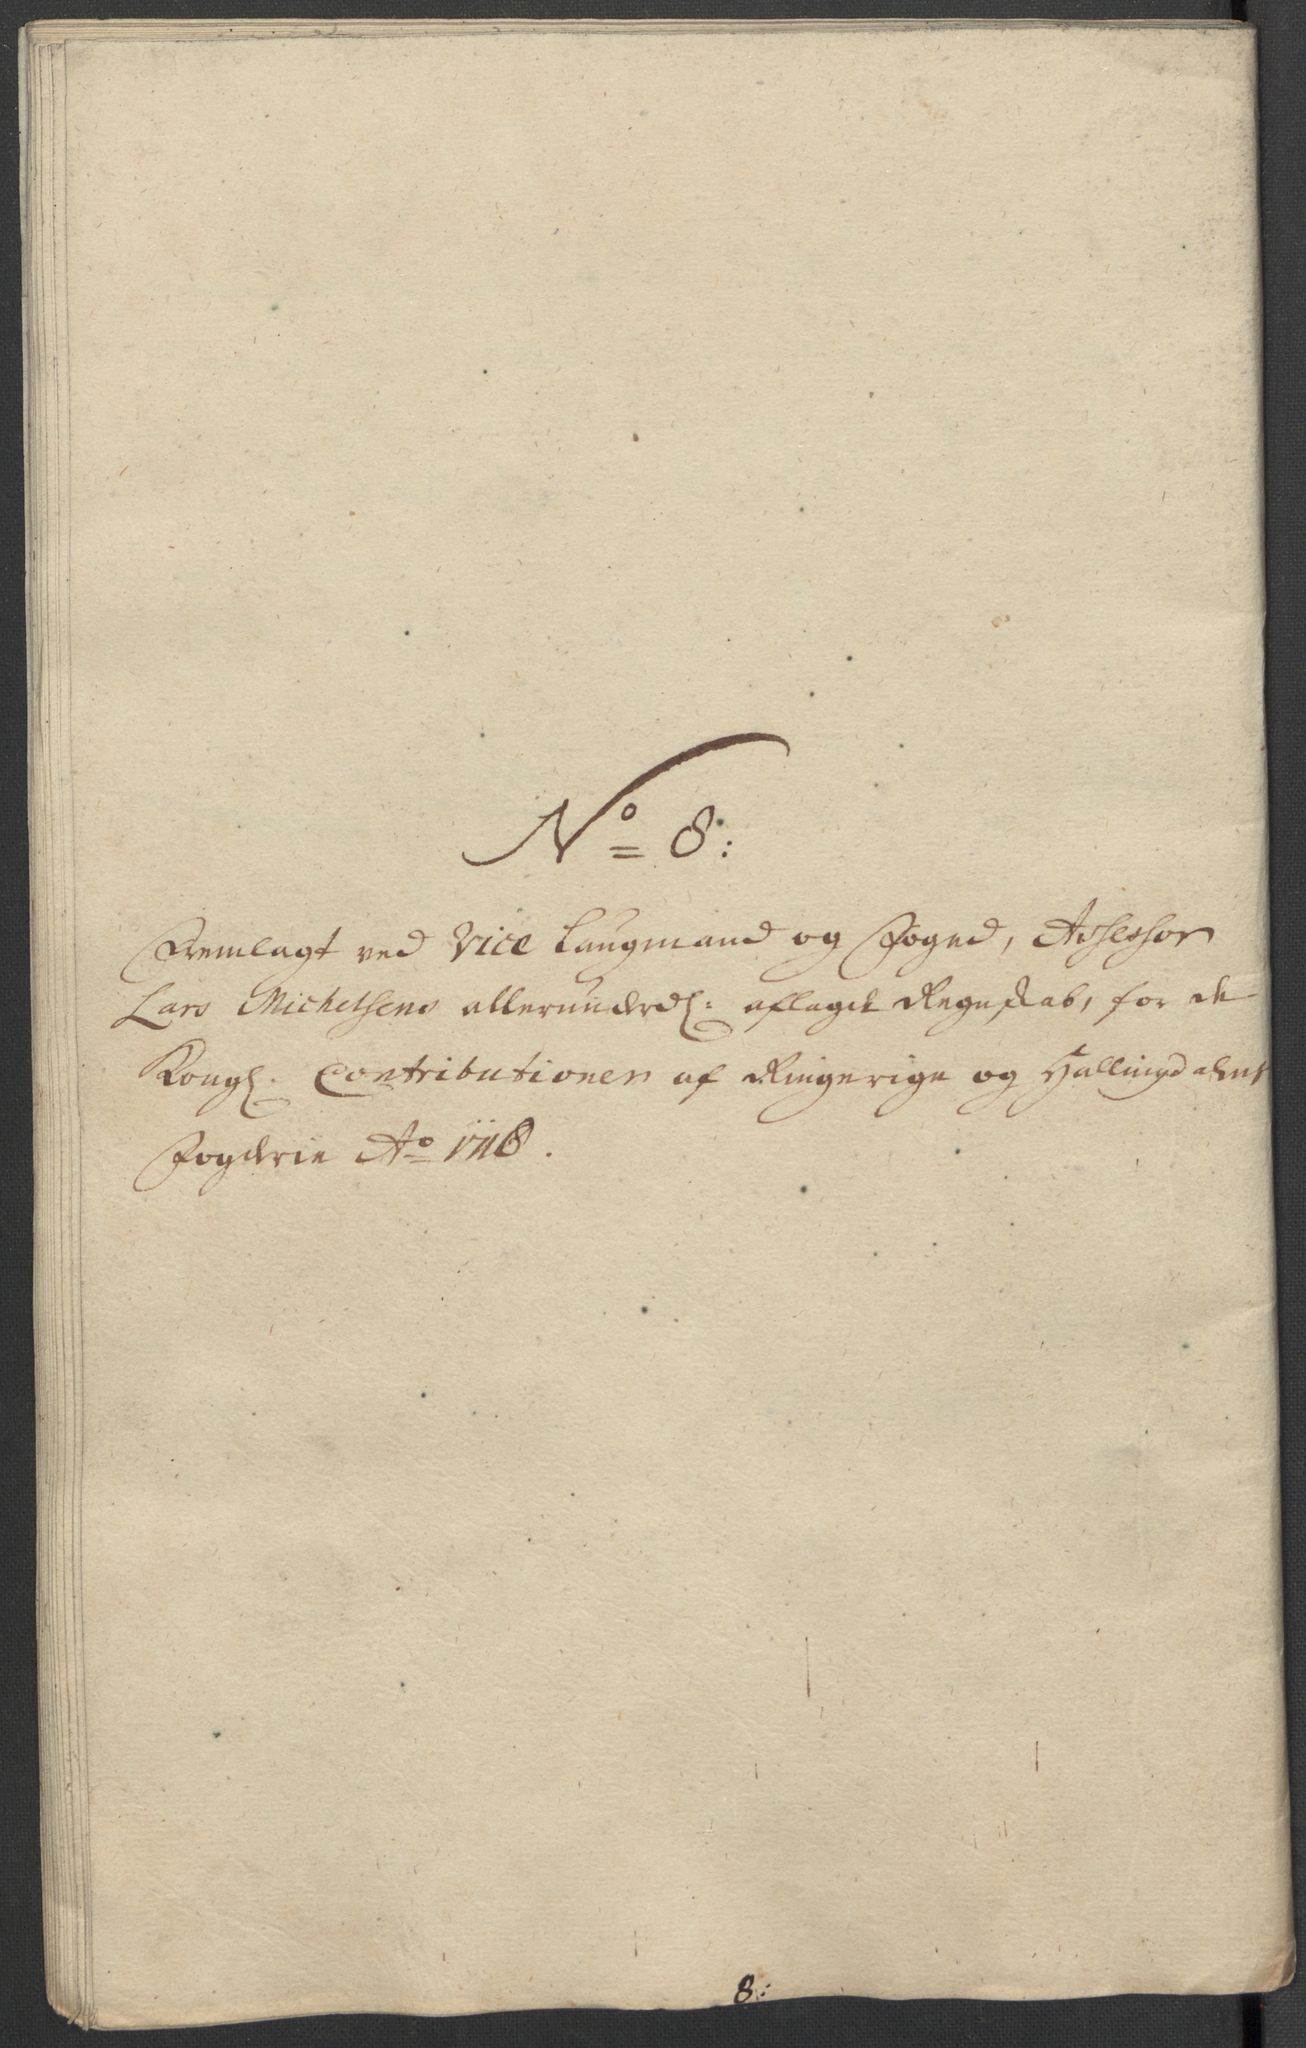 No 8:
Fremlagt ved Vice Laugmand og Foged, Assessor
Lars Michelsens allerunderdl: aflagde Regnskab, for de
Kongl. Contributioner af Ringerige og Hallingdalens
Fogderie Ao 1718.
8: